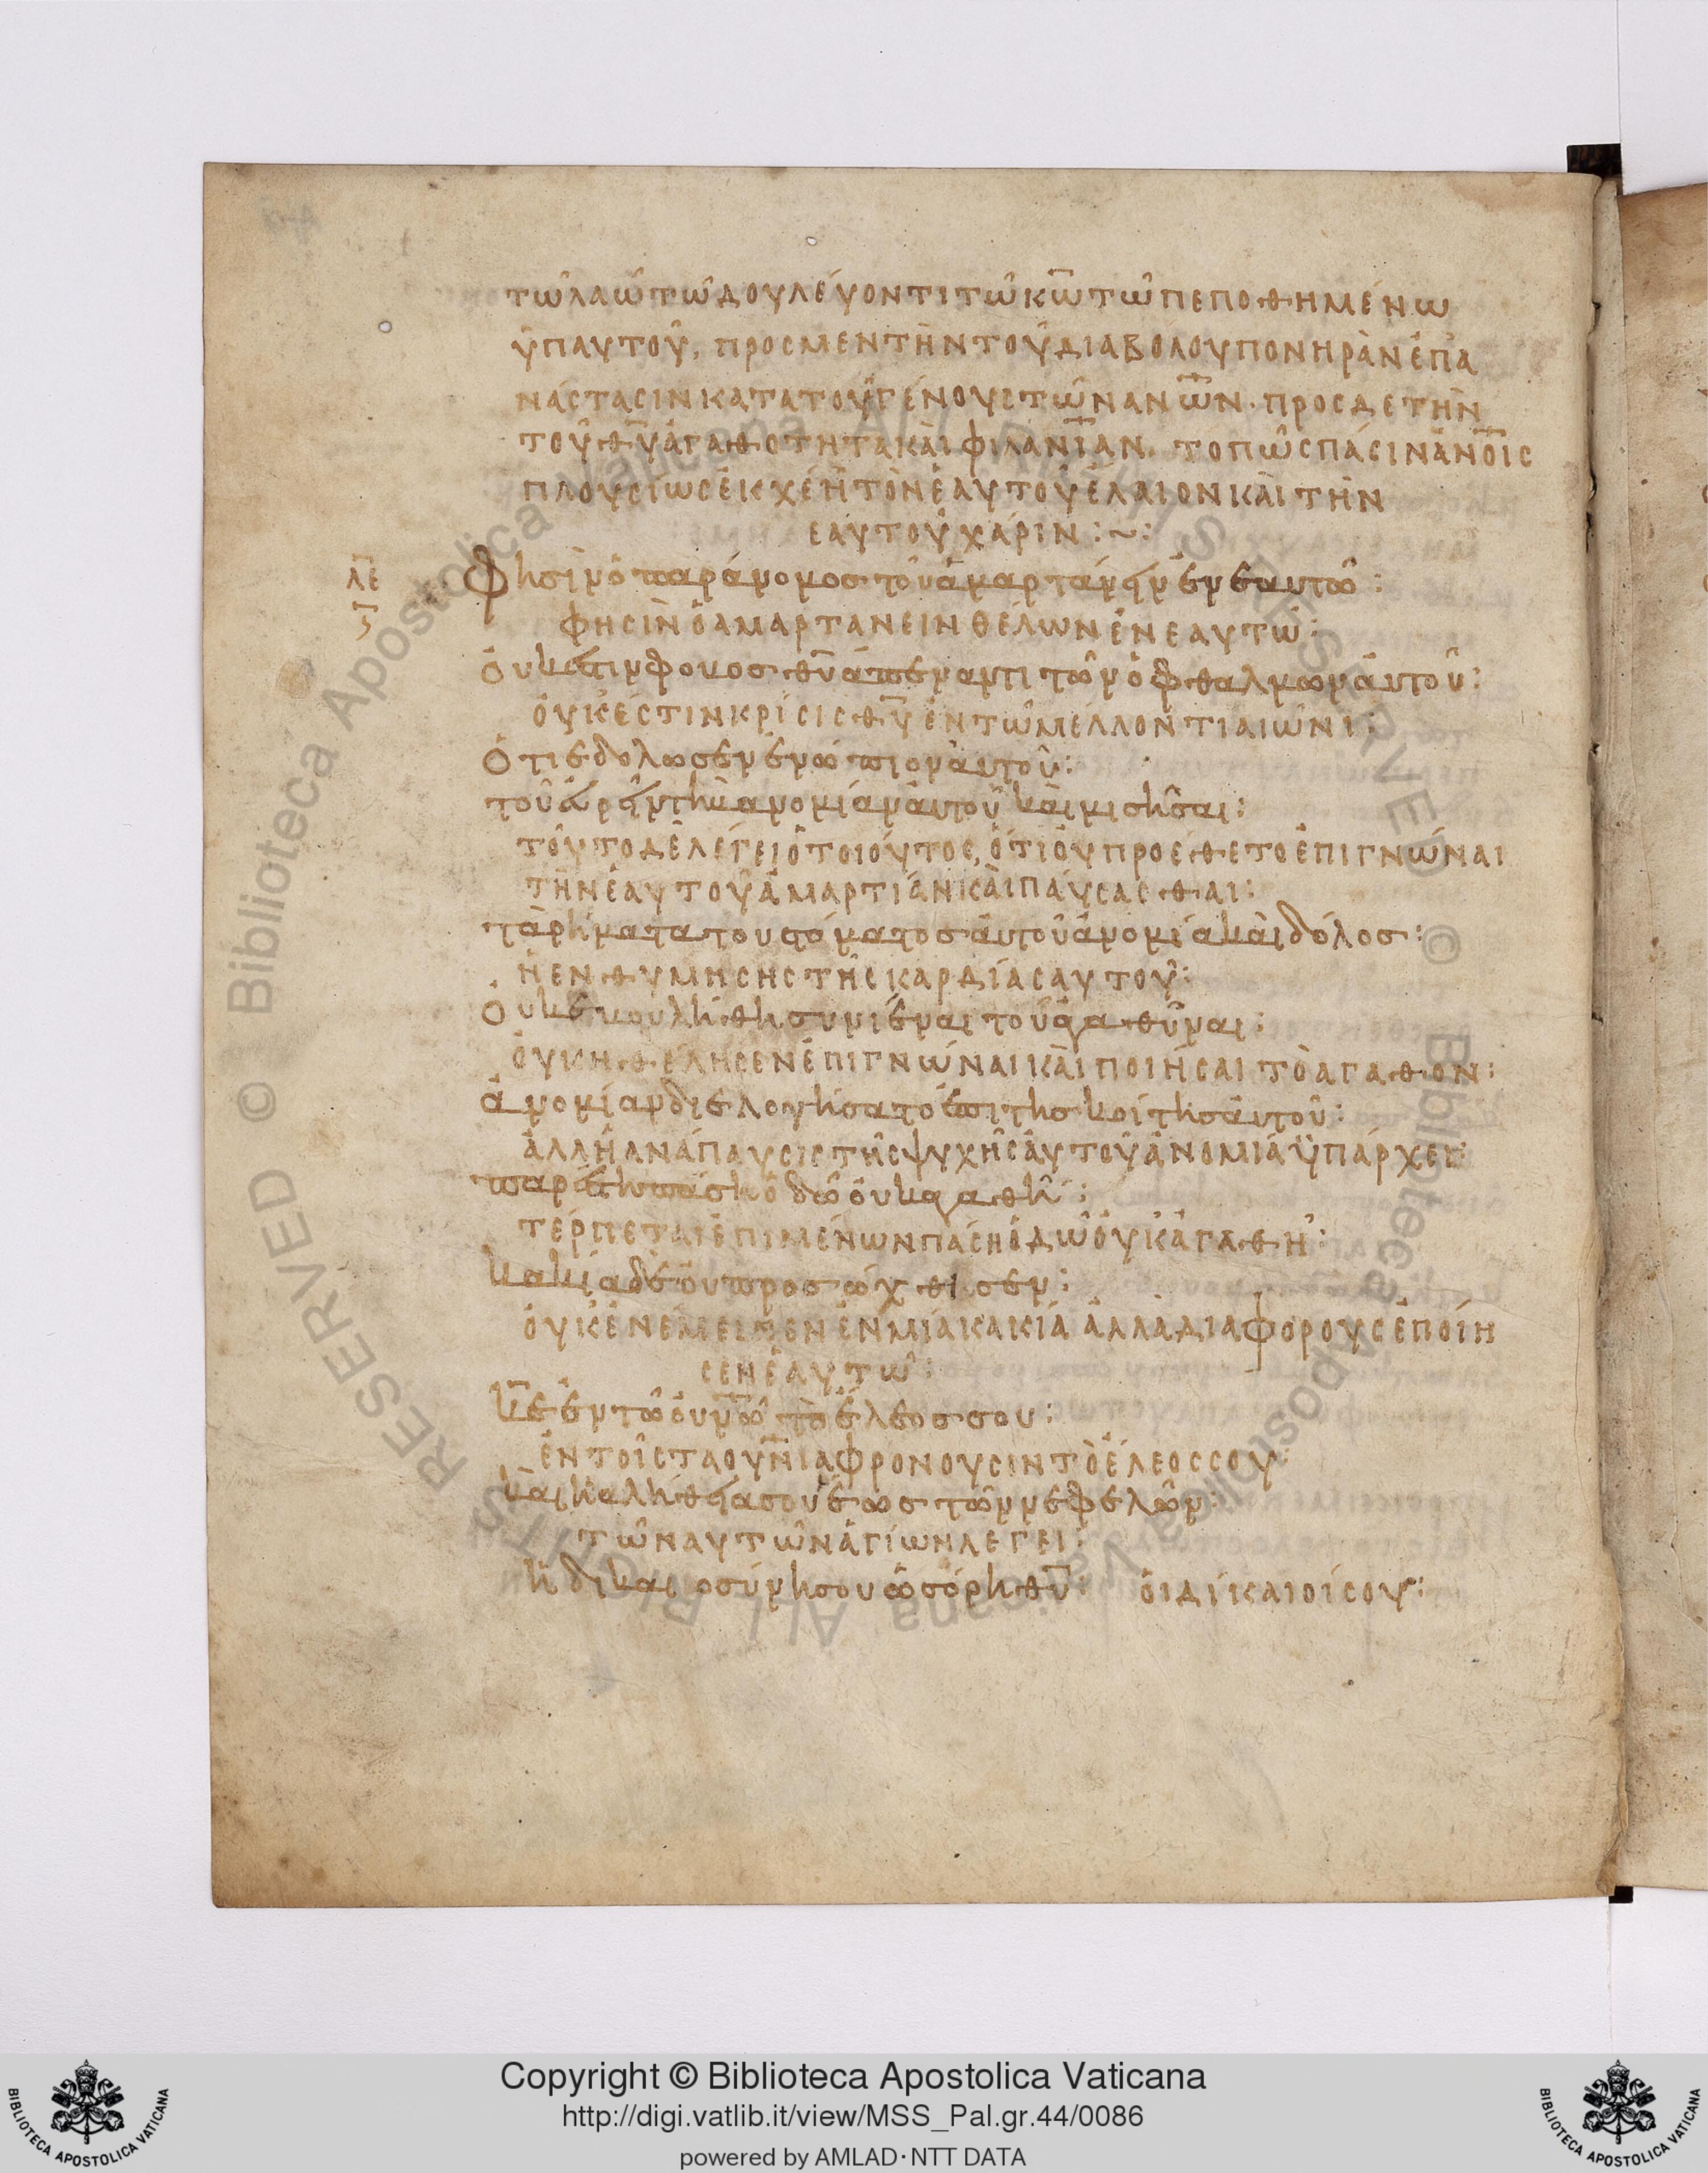 τῶ λαῶ τῶ δουλέυοντι τῶ κ̅ω̅ τῶ πεποθημένω
ὑπ αυτοῦ, προσ μεν τὴν τοῦ διαβόλου πονηρὰν ἐπα
νάστασιν κατα τοῦ γένουσ τῶν αν̅ω̅ν· προσ δε τὴν
τοῦ θ̅υ̅ ἀγαθοτητα καὶ φιλαν̅ι̅αν, το πῶσ πάσιν ἀνο̅ι̅σ
πλουσίωσ ἐκχέη τὸν ἑαυτοῦ ἔλαιον καὶ τὴν
εαυτοῦ χάριν :~:
λε
ς
Φησὶν ὁ παράνομοσ τοῦ ἁμαρτάνειν ἐν εαυτῶ :
φησὶν ὁ αμαρτανειν θέλων ἐν εαυτῶ :
Ὀυκ εστιν φοβοσ θ̅υ̅ ἀπέναντι τῶν ὀφθαλμων ἀυτοῦ :
ὀυκ ἔστιν κρίσισ θ̅υ̅ ἐν τῶ μέλλοντι αιῶνι :
Ὁτι εδολωσεν ἐνώπιον ἀυτοῦ :
τοῦ ἑυρεῖν τὴν ανομίαν ἀυτοῦ καὶ μισῆσαι :
τόυτο δὲ λέγει ὁ τοιόυτοσ, ὅτι ὀυ προέθετο ἐπιγνώναι
τὴν ἑαυτοῦ ἁμαρτίαν καὶ πάυσασθαι :
τὰ ρήματα του στόματοσ ἀυτοῦ ἀνομία καὶ δόλοσ :
ἡ ενθυμησησ τῆσ καρδίασ αυτοῦ :
Ὀυκ εβουλήθη συνιέναι τοῦ ἀγαθῦναι :
ὀυκ ηθέλησεν ἐπιγνώναι καὶ ποιήσαι τὸ αγαθον :
ἀνομίαν διελογήσατο ἐπι τησ κοίτησ ἀυτοῦ :
ἀλλ ἡ ανάπαυσισ τῆσ ψυχῆσ ἀυτοῦ ἀνομιά ὑπάρχει :
παρέστη πάση ὁδῶ ὀυκ αγαθῆ :
τέρπεται ἐπιμένων πάση ὁδῶ ὀυκ ἀγαθῆ :
κακία δὲ ὀυ προσώχθισεν :
ὀυκ ἐνέμεινεν ἐν μιά κακιά ἀλλὰ διαφόρουσ ἐποίη
σεν ἑαυτῶ :
κ̅ε̅ ἐν τῶ ὀυν̅ω̅ τὸ ἔλεοσ σου :
ἐν τοῖσ τα ουν̅ια φρονουσιν τὸ ἔλεοσ σου :
καὶ η αλήθεια σου ἕωσ τῶν νεφελῶν :
τῶν αυτῶν ἁγίων λεγει :
ἡ δικαιοσύνη σου ὡσ όρη θ̅υ̅ : ὁι δίκαιοί σου :
Copyright © Biblioteca Apostolica Vaticana
http://digi.vatlib.it/view/MSS_Pal.gr.44/0086
powered by AMLAD·NTT DATA